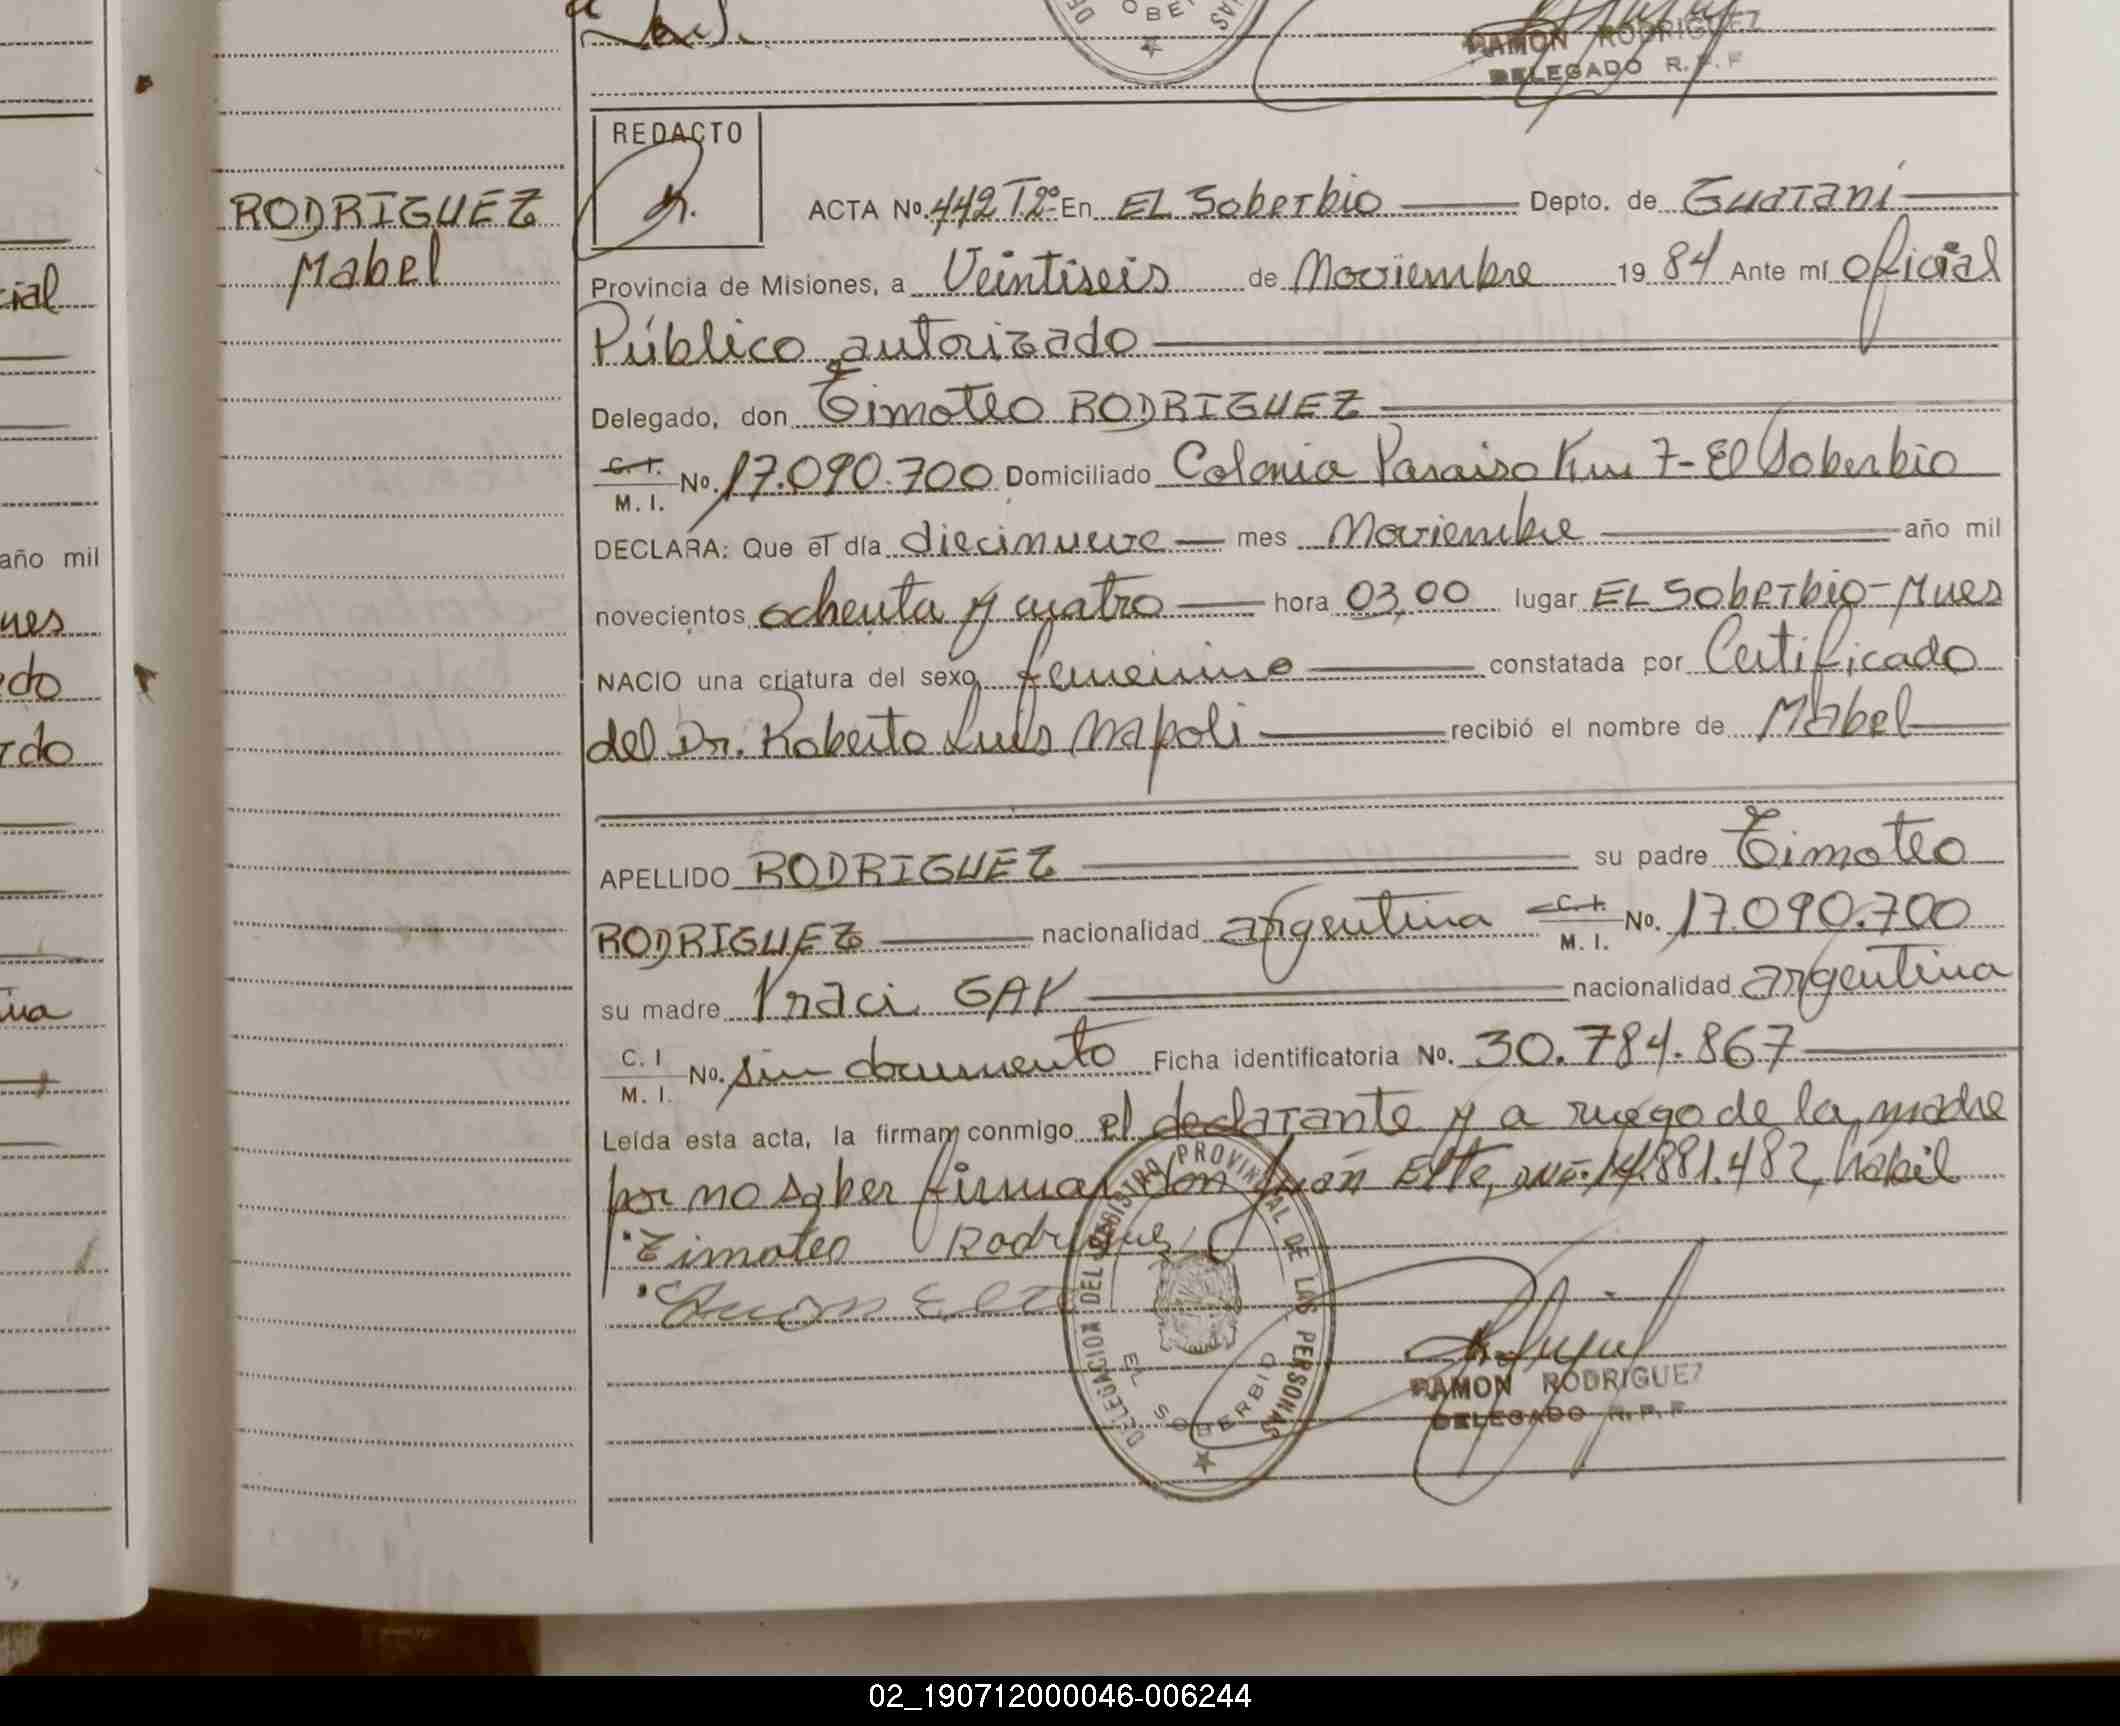 RAMON RODRIGUEZ
DELEGADO R.P.F
REDACTO
RODRIGUEZ
Mabel
ACTA No. 442 T.2º En EL Soberbio Depto. de Guaraní
Provincia de Misiones, a Veintiseis de Noviembre 19 84 Ante mí oficial
Público autorizado
Delegado, don Timoteo RODRIGUEZ
C. I.
M. I. No. 17.090.700 Domiciliado Colonia Paraiso Km 7 - El Soberbio
DECLARA: Que el día diecinueve mes Noviembre año mil
novecientos ochenta y cuatro hora 03,00 lugar EL Soberbio - Mnes
NACIO una criatura del sexo femenino constatada por Certificado
del Dr. Roberto Luis Napoli recibió el nombre de Mabel
APELLIDO RODRIGUEZ su padre Timoteo
RODRIGUEZ nacionalidad argentina C. I. M. I. No. 17.090.700
su madre Iraci GAK nacionalidad argentina
C. I
M. I. No. sin documento Ficha identificatoria No. 30.784.867
Leída esta acta, la firman conmigo el declarante y a ruego de la madre
por no saber firmar don Juan Elte, DNI: 14.881.482, habil
Timoteo Rodriguez
Juan Elte
DELEGACION DEL REGISTRO PROVINCIAL DE LAS PERSONAS
EL SOBERBIO
RAMON RODRIGUEZ
DELEGADO R.P.F
año mil
02_190712000046-006244